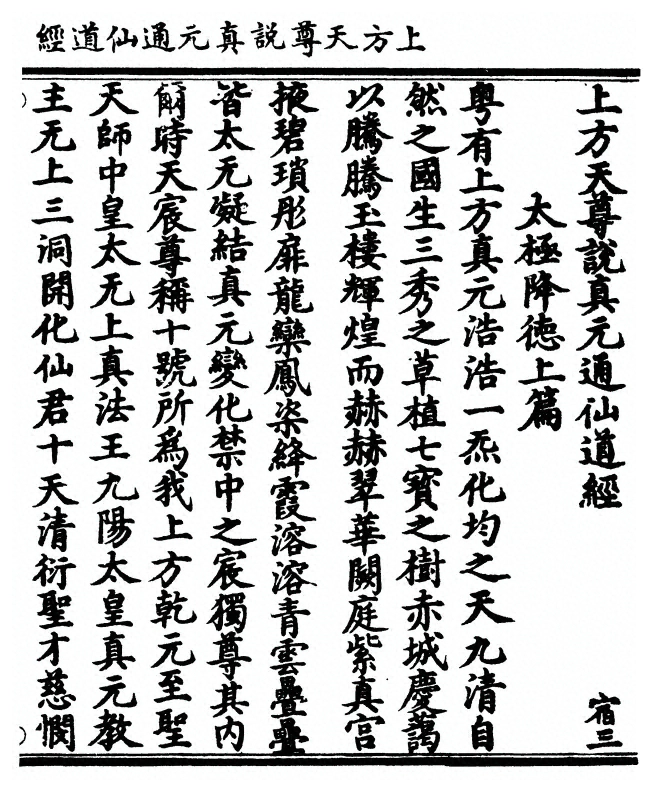 上方天尊說真元通仙道經
上方天尊說真元通仙道經
宿三
太極降德上篇
粵有上方真元浩浩一炁化均之天九清自
然之國生三秀之草植七寶之樹赤城慶藹
以騰騰玉樓輝煌而赫赫翠華闕庭紫真宮
掖碧瑣彤扉龍欒鳳楶絳霞溶溶青雲疊疊
皆太无凝結真元變化禁中之宸獨尊其內
爾時天宸尊稱十號所爲我上方乾元至聖
天師中皇太无上真法王九陽太皇真元教
主无上三洞開化仙君十天清衍聖才慈憫